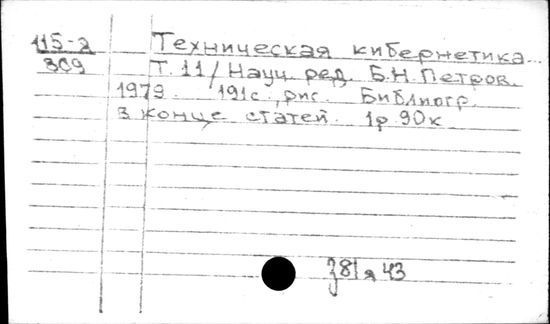 115-2 Техническая кибернетика...
369 Т.11 / Науч. ред. Б.Н. Петров.
1979. 191с., рис. Библиогр.
в конце статей. 1р 90к
з81я43